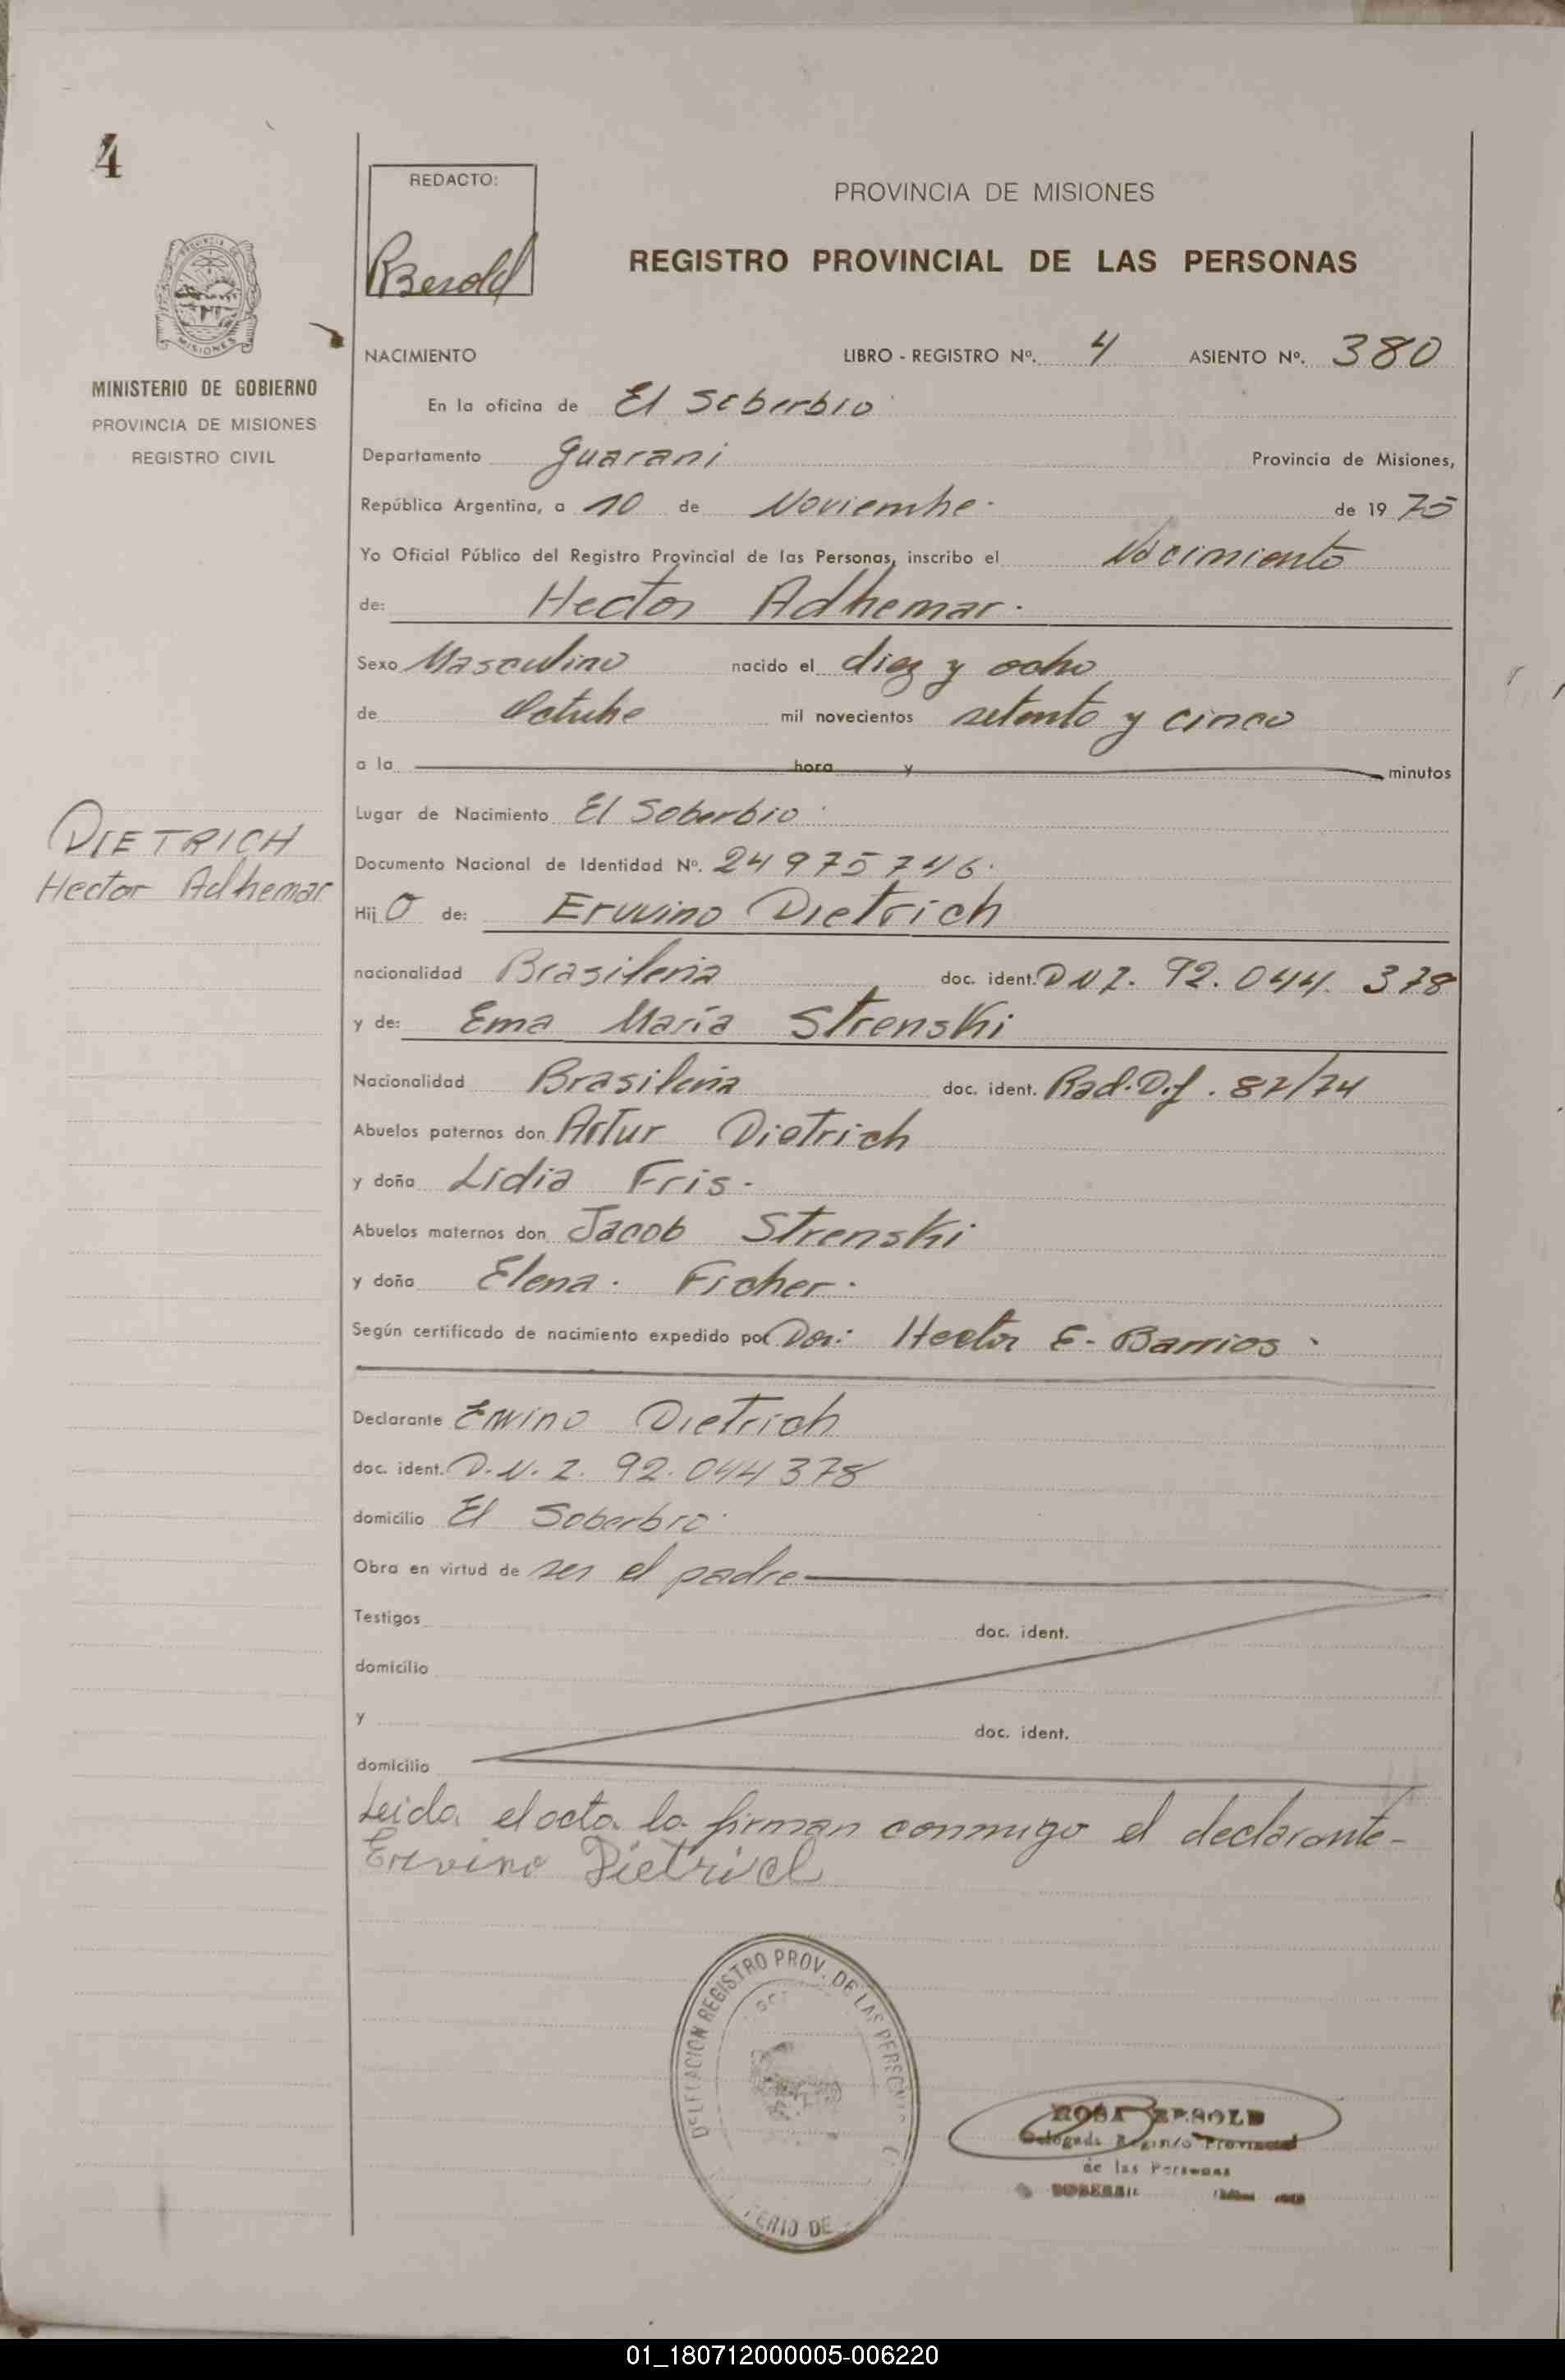 4
REDACTO:
RBesold
PROVINCIA DE MISIONES
REGISTRO PROVINCIAL DE LAS PERSONAS
MINISTERIO DE GOBIERNO
PROVINCIA DE MISIONES
REGISTRO CIVIL
NACIMIENTO LIBRO - REGISTRO Nº. 4 ASIENTO Nº. 380
En la oficina de El Soberbio
Departamento Guarani Provincia de Misiones,
República Argentina, a 10 de Noviembre. de 19 75
Yo Oficial Público del Registro Provincial de las Personas, inscribo el Nacimiento
de: Hector Adhemar.
Sexo Masculino nacido el diez y ocho
de Octubre mil novecientos setenta y cinco
a la hora y minutos
Lugar de Nacimiento El Soberbio
DIETRICH
Hector Adhemar
Documento Nacional de Identidad Nº. 24975746.
Hij o de: Erwino Dietrich
nacionalidad Brasileria doc. ident. DNI. 92.044.378
y de: Ema María Strenski
Nacionalidad Brasileria doc. ident. Rad. Def. 82/74
Abuelos paternos don Artur Dietrich
y doña Lidia Fris.
Abuelos maternos don Jacob Strenski
y doña Elena. Ficher.
Según certificado de nacimiento expedido por Hector E. Barrios
Declarante Erwino Dietrich
doc. ident. D.N.I. 92.044378
domicilio El Soberbio
Obra en virtud de ser el padre
Testigos doc. ident.
domicilio
y doc. ident.
domicilio
Leida el acta la firman conmigo el declarante-
Erevino Dietrich
DELEGACION REGISTRO PROV. DE LAS PERSONAS
TERIO DE
ROSA BESOLD
Delegada Registro Provincial
de las Personas
01_180712000005-006220